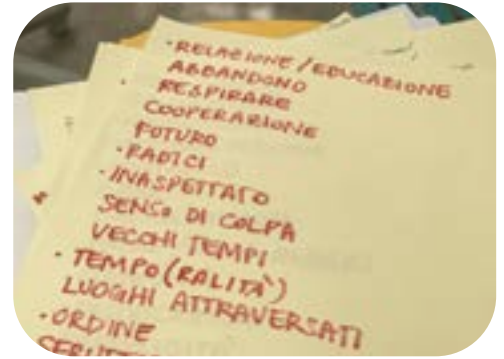 · RELAZIONE / EDUCAZIONE
ABBANDONO
RESPIRARE
COOPERAZIONE
FUTURO
· RADICI
· INASPETTATO
SENSO DI COLPA
VECCHI TEMPI
· TEMPO (RALITÀ)
LUOGHI ATTRAVERSATI
· ORDINE